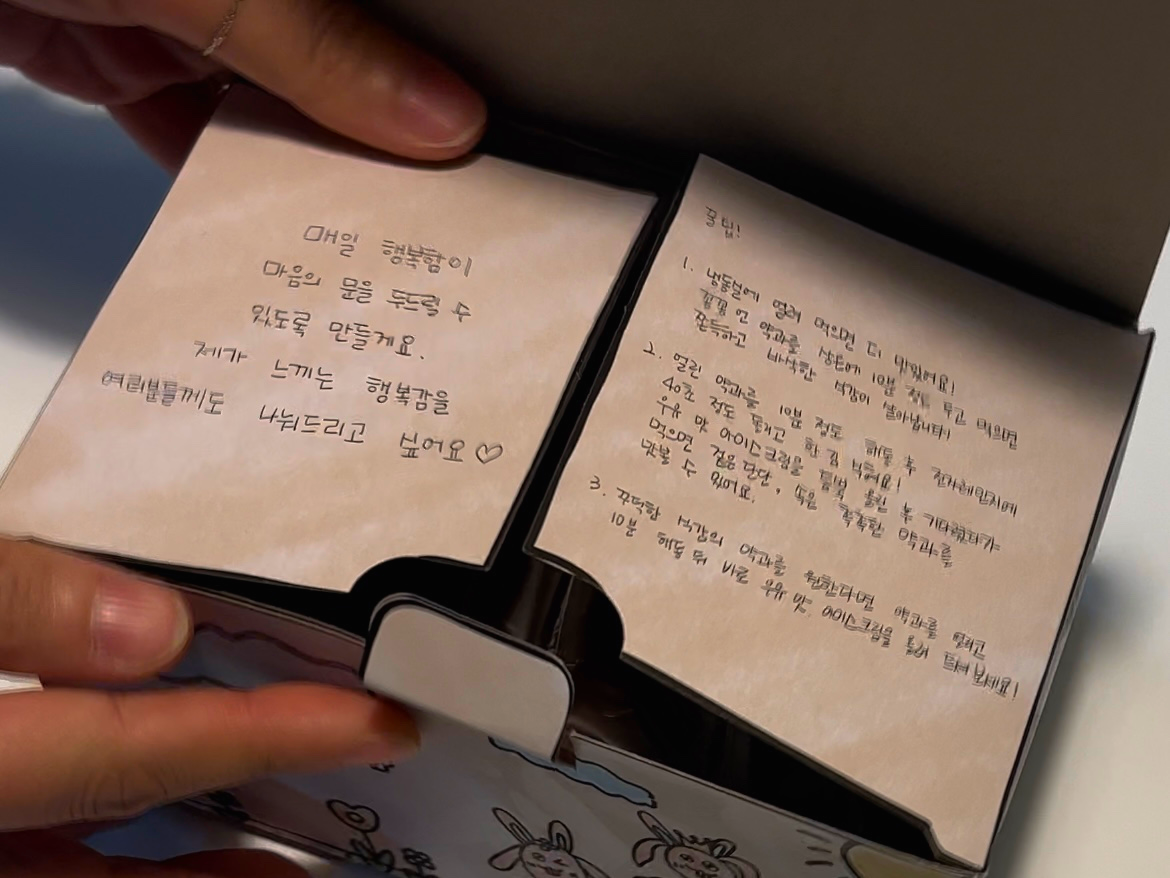 매일 행복함이
마음의 문을 두드릴 수
있도록 만들게요.
제가 느끼는 행복감을
여러분들께도 나눠드리고 싶어요♡
꿀팁!
1. 냉동실에 얼려 먹으면 더 맛있어요!
꽁꽁 언 약과를 상온에 10분 정도 두고 먹으면
쫀득하고 바삭한 식감이 살아납니다!
2. 얼린 약과를 10분 정도 해동 후 전자레인지에
40초 정도 돌리고 한 김 식혀요!
우유 맛 아이스크림을 듬뿍 올린 후 기다렸다가
먹으면 겉은 단단, 속은 촉촉한 약과를
맛볼 수 있어요.
3. 꾸덕한 식감의 약과를 원한다면 약과를 얼리고
10분 해동 뒤 바로 우유 맛 아이스크림을 올려 드셔보세요!